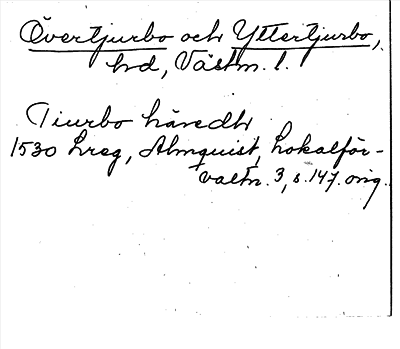 Övertjurbo och Yttertjurbo,
hd, Västm. l.
Tiurbo häredh
1530 Lreg, Almquist, Lokalför-
valtn. 3, s. 147. orig.